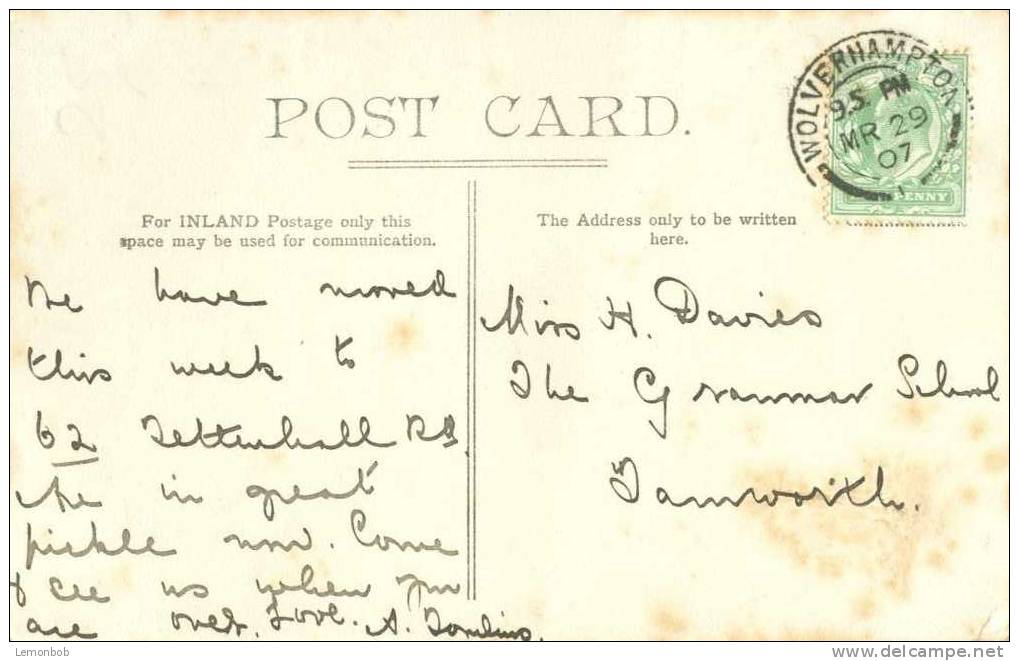 POST CARD.
WOLVERHAMPTON
9.5 PM
MR 29
07
PENNY
For INLAND Postage only this
space may be used for communication.
We have moved
this week to
62 Tettenhall Rd.
Are in great
pickle now. Come
& see us when you
are over. Love. A. Tomlins.
The Address only to be written
here.
Miss H. Davies
The Grammar School
Tamworth.
Lemonbob
delcampe.net